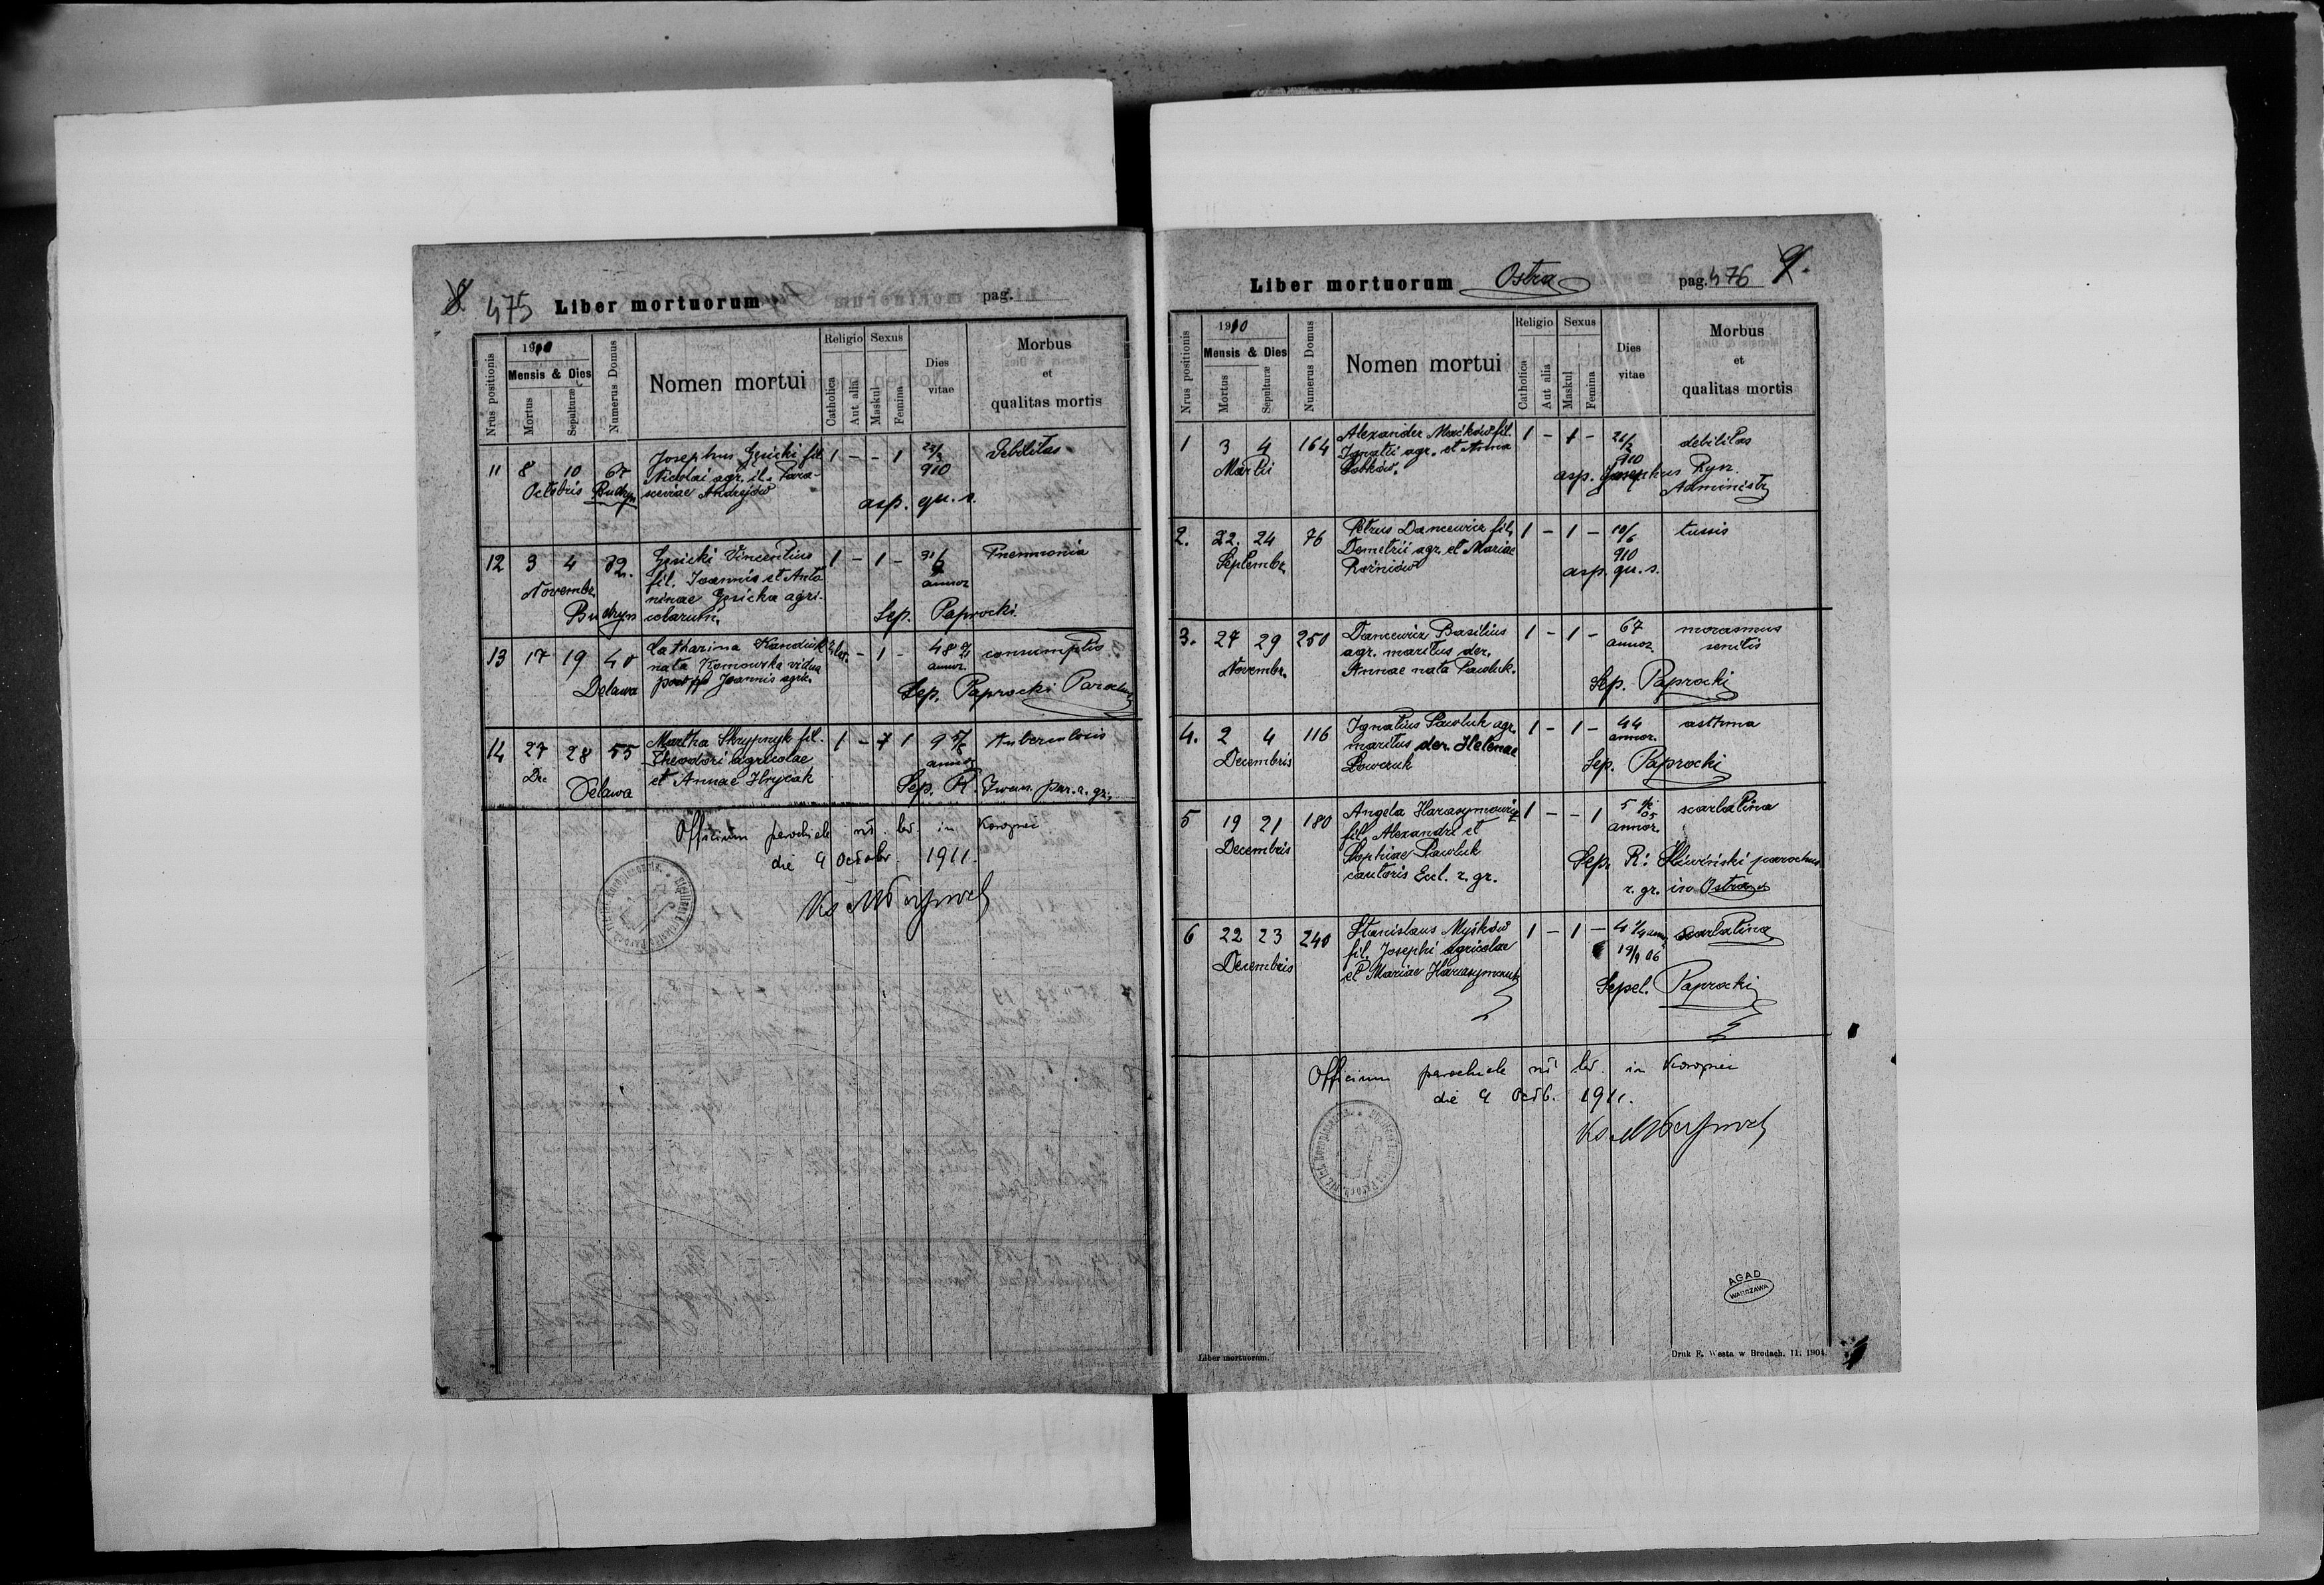 8. 475 Liber mortuorum pag.
Nrus positionis
1910
Mensis & Dies
Mortus
Sepulturæ
Numerus Domus
Nomen mortui
Religio
Catholica
Aut alia
Sexus
Maskul
Femina
Dies
vitae
Morbus
et
qualitas mortis
11 8 10 67 Josephus Gęsicki fil. 1 - - 1 Debilitas
Nicolai agr. et Para- 910
Octobris Budzyn sceviae Andrejów
asp. qu. s.
12 3 4 32. Gęsicki Vincentius 1 - 1 - Pneumonia
fil. Joannis et Anto annor.
Novembr. ninae Gęsicka agri-
Budzyn colarum. Sep. Paprocki.
13 17 19 40 Catharina Kanduk - 1 - 48 consumptio
nata Komowska vidua annor.
Delawa post pp Joannis agric. Sep. Paprocki Parochus
14 27 28 55 Martha Skrypnyk fil. 1 - 1 9 Tuberculosis
Dec Theodori agricolae annor
Delawa et Annae Hrycak Sep. R. Iwan. par. r. gr.
Officium parochiale rit. lat. in Koropiec
die 9 Octobr. 1911.
Liber mortuorum Ostra pag. 476 9.
Nrus positionis
1910
Mensis & Dies
Mortus
Sepulturæ
Numerus Domus
Nomen mortui
Religio
Catholica
Aut alia
Sexus
Maskul
Femina
Dies
vitae
Morbus
et
qualitas mortis
1 3 4 164 Alexander Maćków fil. 1 - 1 - debilitas
Martii Ignatii agr. et Anna 910
asp. Josephus Ryn.
Administr
2. 22. 24 76 Petrus Dancewicz fil. 1 - 1 - 10/6 tussis
Septembr. Demetrii agr. et Mariae 910
Rożniów asp. qu. s.
3. 27 29 250 Dancewicz Basilius 1 - 1 - 67 marasmus
agr. maritus der. annor. senilis
Novembr. Annae nata Pawluk.
Sep. Paprocki
4. 2 4 116 Ignatius Pawluk agr. 1 - 1 - 44 asthma
maritus der. Helenae annor.
Decembris Łowczuk Sep. Paprocki
5 19 21 180 Angela Harasymowicz 1 - - 1 5 scarlatina
fil. Alexandri et annor.
Decembris Sophiae Pawluk Sep. R: Śliwiński parochus
cantoris Eccl. r. gr. r. gr. in Ostra
6 22 23 240 Stanislaus Myśków 1 - 1 - 4 1/4 ann scarlatina
fil. Josephi agricolae 19/9 06
Decembris et Mariae Harasymczuk
Sepel. Paprocki
Officium parochiale rit lat. in Koropiec
die 9 Octb. 1911.
AGAD
WARSZAWA
Liber mortuorum.
Druk F. Westa w Brodach. II. 1904.